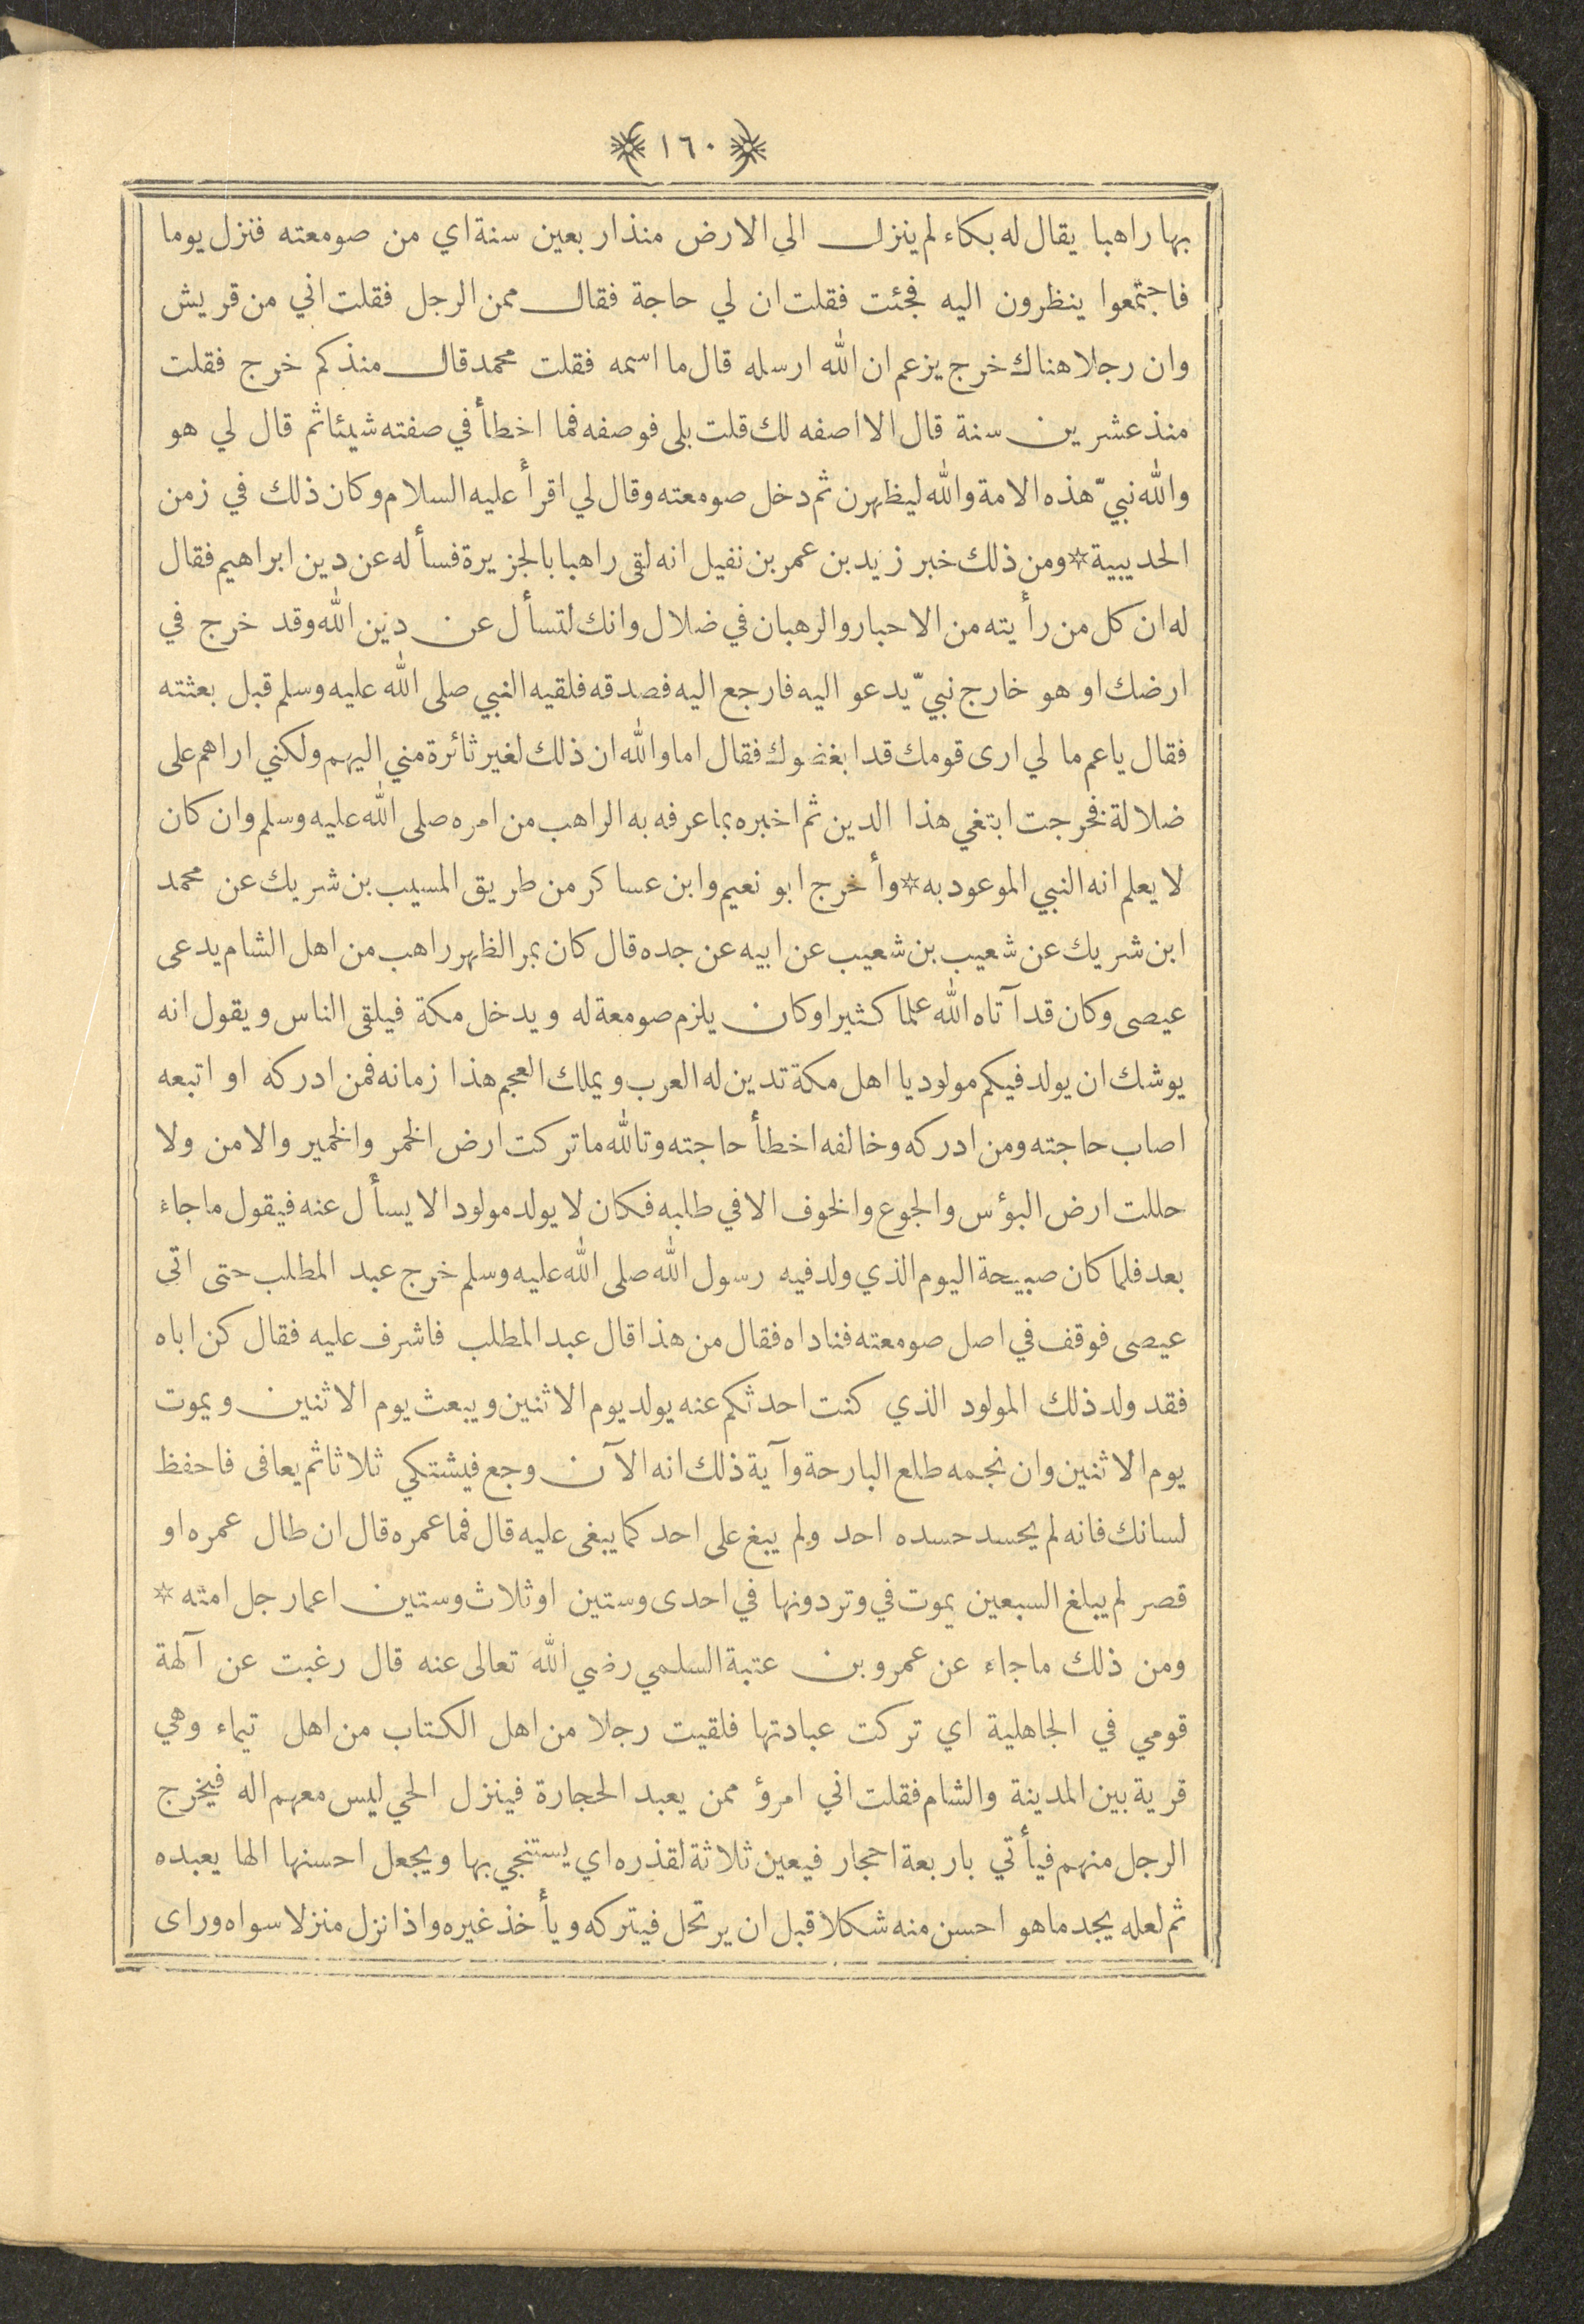 ١٦٠
بها راهبا يقال له بكاء لم ينزل الى الارض منذ اربعين سنة اي من صومعته فنزل يوما
فاجتمعوا ينظرون اليه فجئت فقلت ان لي حاجة فقال ممن الرجل فقلت اني من قريش
وان رجلا هناك خرج يزعم ان الله ارسله قال ما اسمه فقلت محمد قال منذ كم خرج فقلت
منذ عشرين سنة قال الا اصفه لك قلت بلى فوصفه فما اخطأ في صفته شيئا ثم قال لي هو
والله نبيّ هذه الامة والله ليظهرن ثم دخل صومعته وقال لي اقرأ عليه السلام وكان ذلك في زمن
الحديبية * ومن ذلك خبر زيد بن عمر بن نفيل انه لقى راهبا بالجزيرة فسأله عن دين ابراهيم فقال
له ان كل من رأيته من الاحبار والرهبان في ضلال وانك لتسأل عن دين الله وقد خرج في
ارضك او هو خارج نبيّ يدعو اليه فارجع اليه فصدقه فلقيه النبي صلى الله عليه وسلم قبل بعثته
فقال يا عم ما لي ارى قومك قد ابغضوك فقال اما والله ان ذلك لغير ثائرة مني اليهم ولكني اراهم على
ضلالة فخرجت ابتغي هذا الدين ثم اخبره بما عرفه به الراهب من امره صلى الله عليه وسلم وان كان
لا يعلم انه النبي الموعود به * وأخرج ابو نعيم وابن عساكر من طريق المسيب بن شريك عن محمد
ابن شريك عن شعيب بن شعيب عن ابيه عن جده قال كان بمر الظهر راهب من اهل الشام يدعى
عيصى وكان قد آتاه الله علما كثيرا وكان يلزم صومعة له ويدخل مكة فيلقى الناس ويقول انه
يوشك ان يولد فيكم مولود يا اهل مكة تدين له العرب ويملك العجم هذا زمانه فمن ادركه او اتبعه
اصاب حاجته ومن ادركه وخالفه اخطأ حاجته وتالله ما تركت ارض الخمر والخمير والامن ولا
حللت ارض البؤس والجوع والخوف الا في طلبه فكان لا يولد مولود الا يسأل عنه فيقول ما جاء
بعد فلما كان صبيحة اليوم الذي ولد فيه رسول الله صلى الله عليه وسلم خرج عبد المطلب حتى اتى
عيصى فوقف في اصل صومعته فناداه فقال من هذا قال عبد المطلب فاشرف عليه فقال كن اباه
فقد ولد ذلك المولود الذي كنت احدثكم عنه يولد يوم الاثنين ويبعث يوم الاثنين ويموت
يوم الاثنين وان نجمه طلع البارحة وآية ذلك انه الآن وجع فيشتكي ثلاثا ثم يعافى فاحفظ
لسانك فانه لم يحسد حسده احد ولم يبغ على احد كما يبغى عليه قال فما عمره قال ان طال عمره او
قصر لم يبلغ السبعين يموت في وتر دونها في احدى وستين او ثلاث وستين اعمار جل امته *
ومن ذلك ما جاء عن عمرو بن عتبة السلمي رضي الله تعالى عنه قال رغبت عن آلهة
قومي في الجاهلية اي تركت عبادتها فلقيت رجلا من اهل الكتاب من اهل تيماء وهي
قرية بين المدينة والشام فقلت اني امرؤ ممن يعبد الحجارة فينزل الحي ليس معهم اله فيخرج
الرجل منهم فيأتي باربعة احجار فيعين ثلاثة لقذره اي يستنجي بها ويجعل احسنها الها يعبده
ثم لعله يجد ما هو احسن منه شكلا قبل ان يرتحل فيتركه ويأخذ غيره واذا نزل منزلا سواه وراى